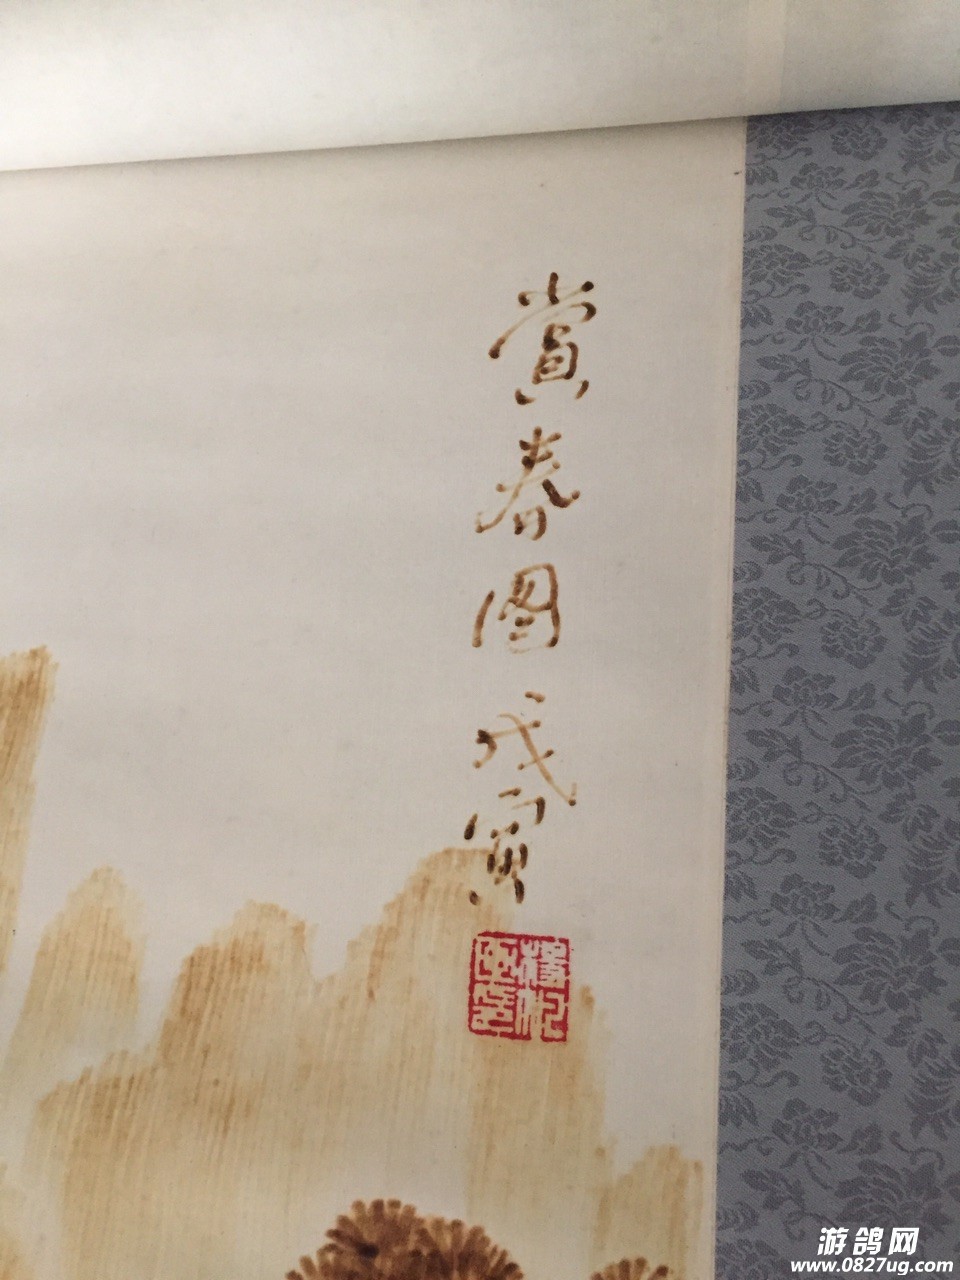 赏春图 戊寅
游鸽网
www.0827ug.com